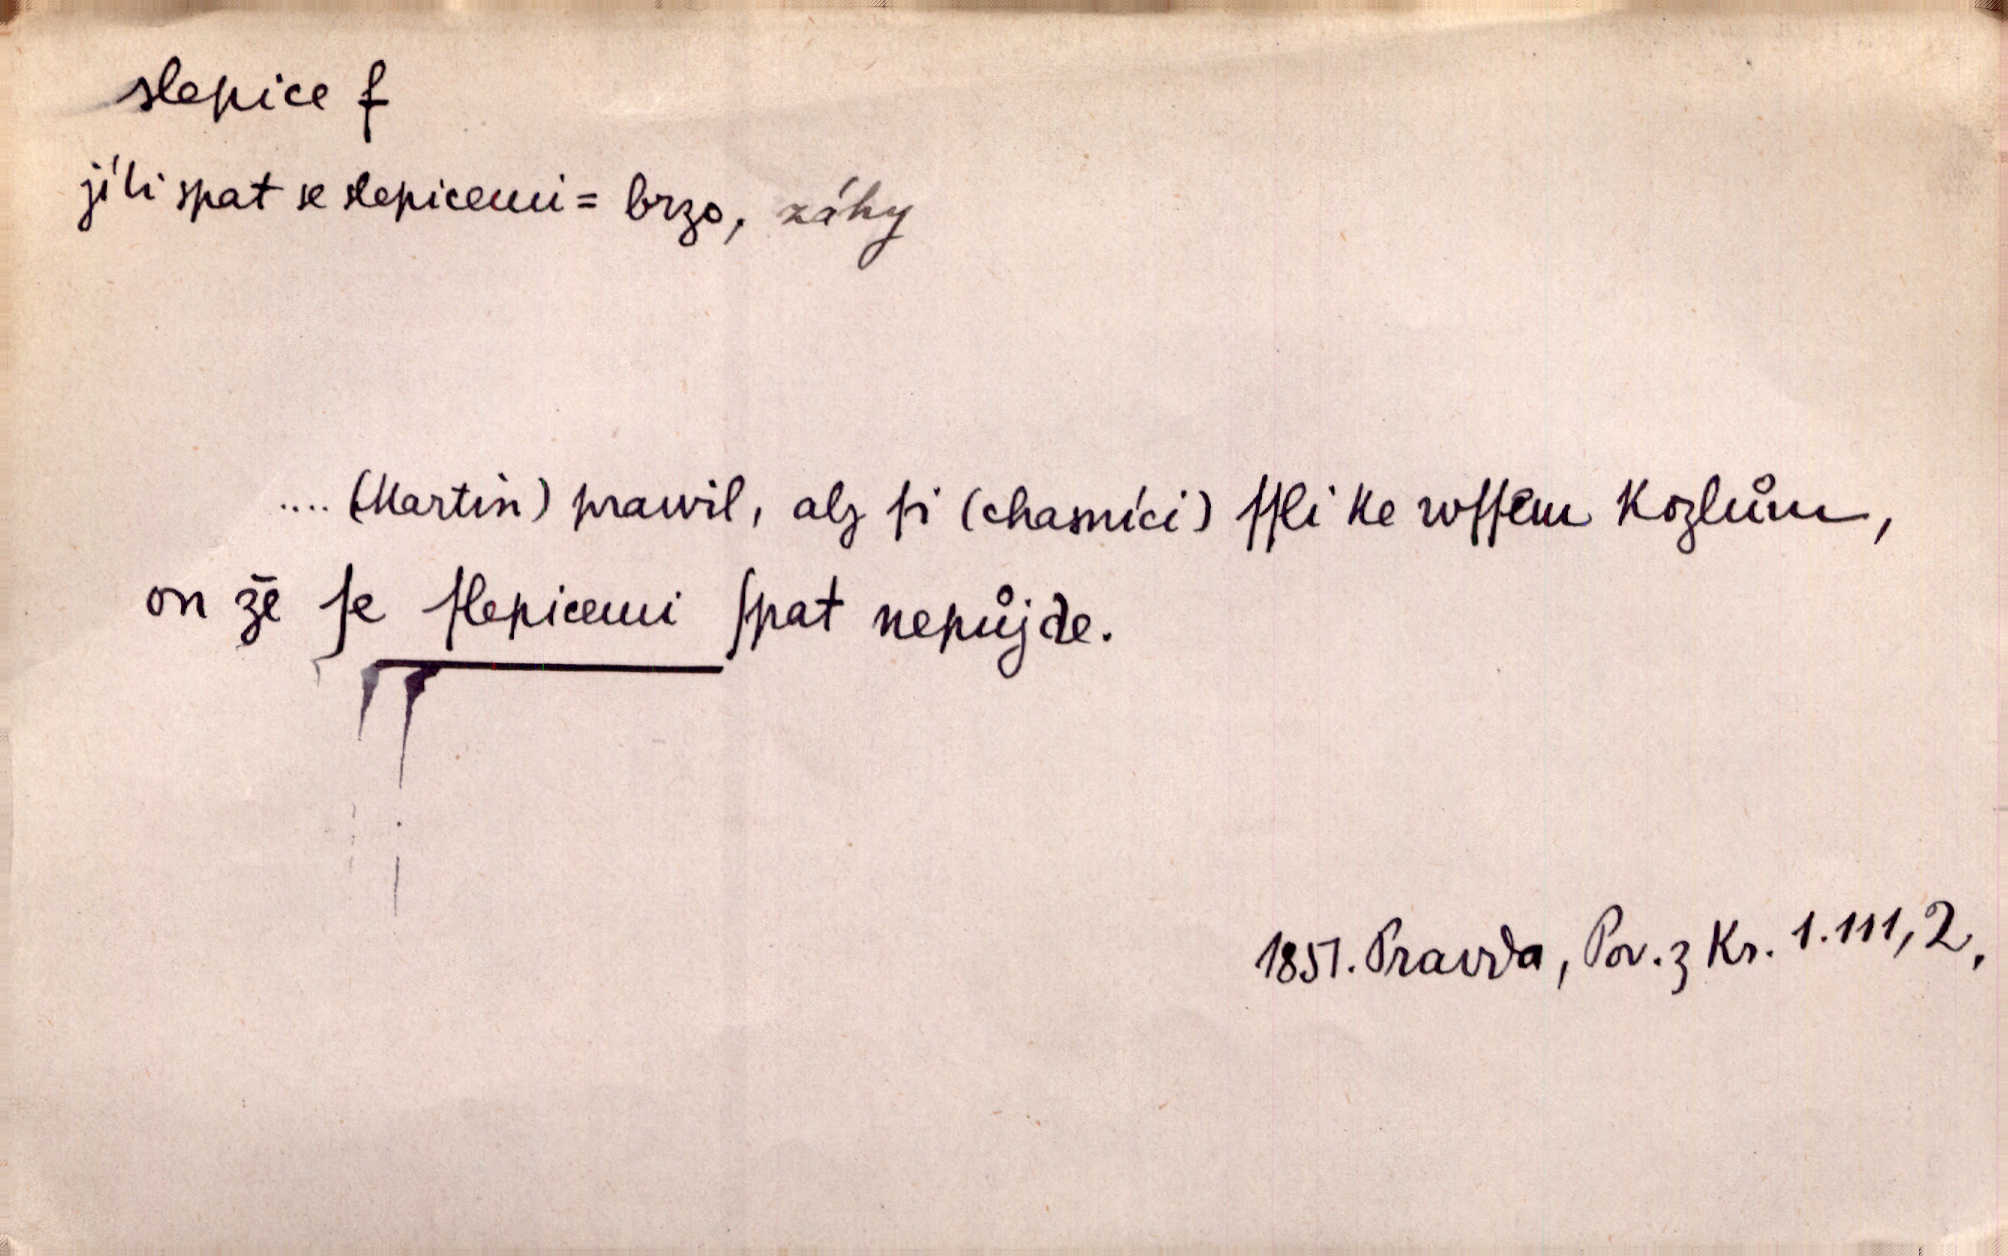 slepice f
jíti spat se slepicemi = brzo, záhy
.... (Martin) prawil, aby ſi (chasníci) ſſli ke wſſem Kozlům,
on že ſe ſlepicemi ſpat nepůjde.
1851. Pravda, Pov. z Kr. 1.111,2,